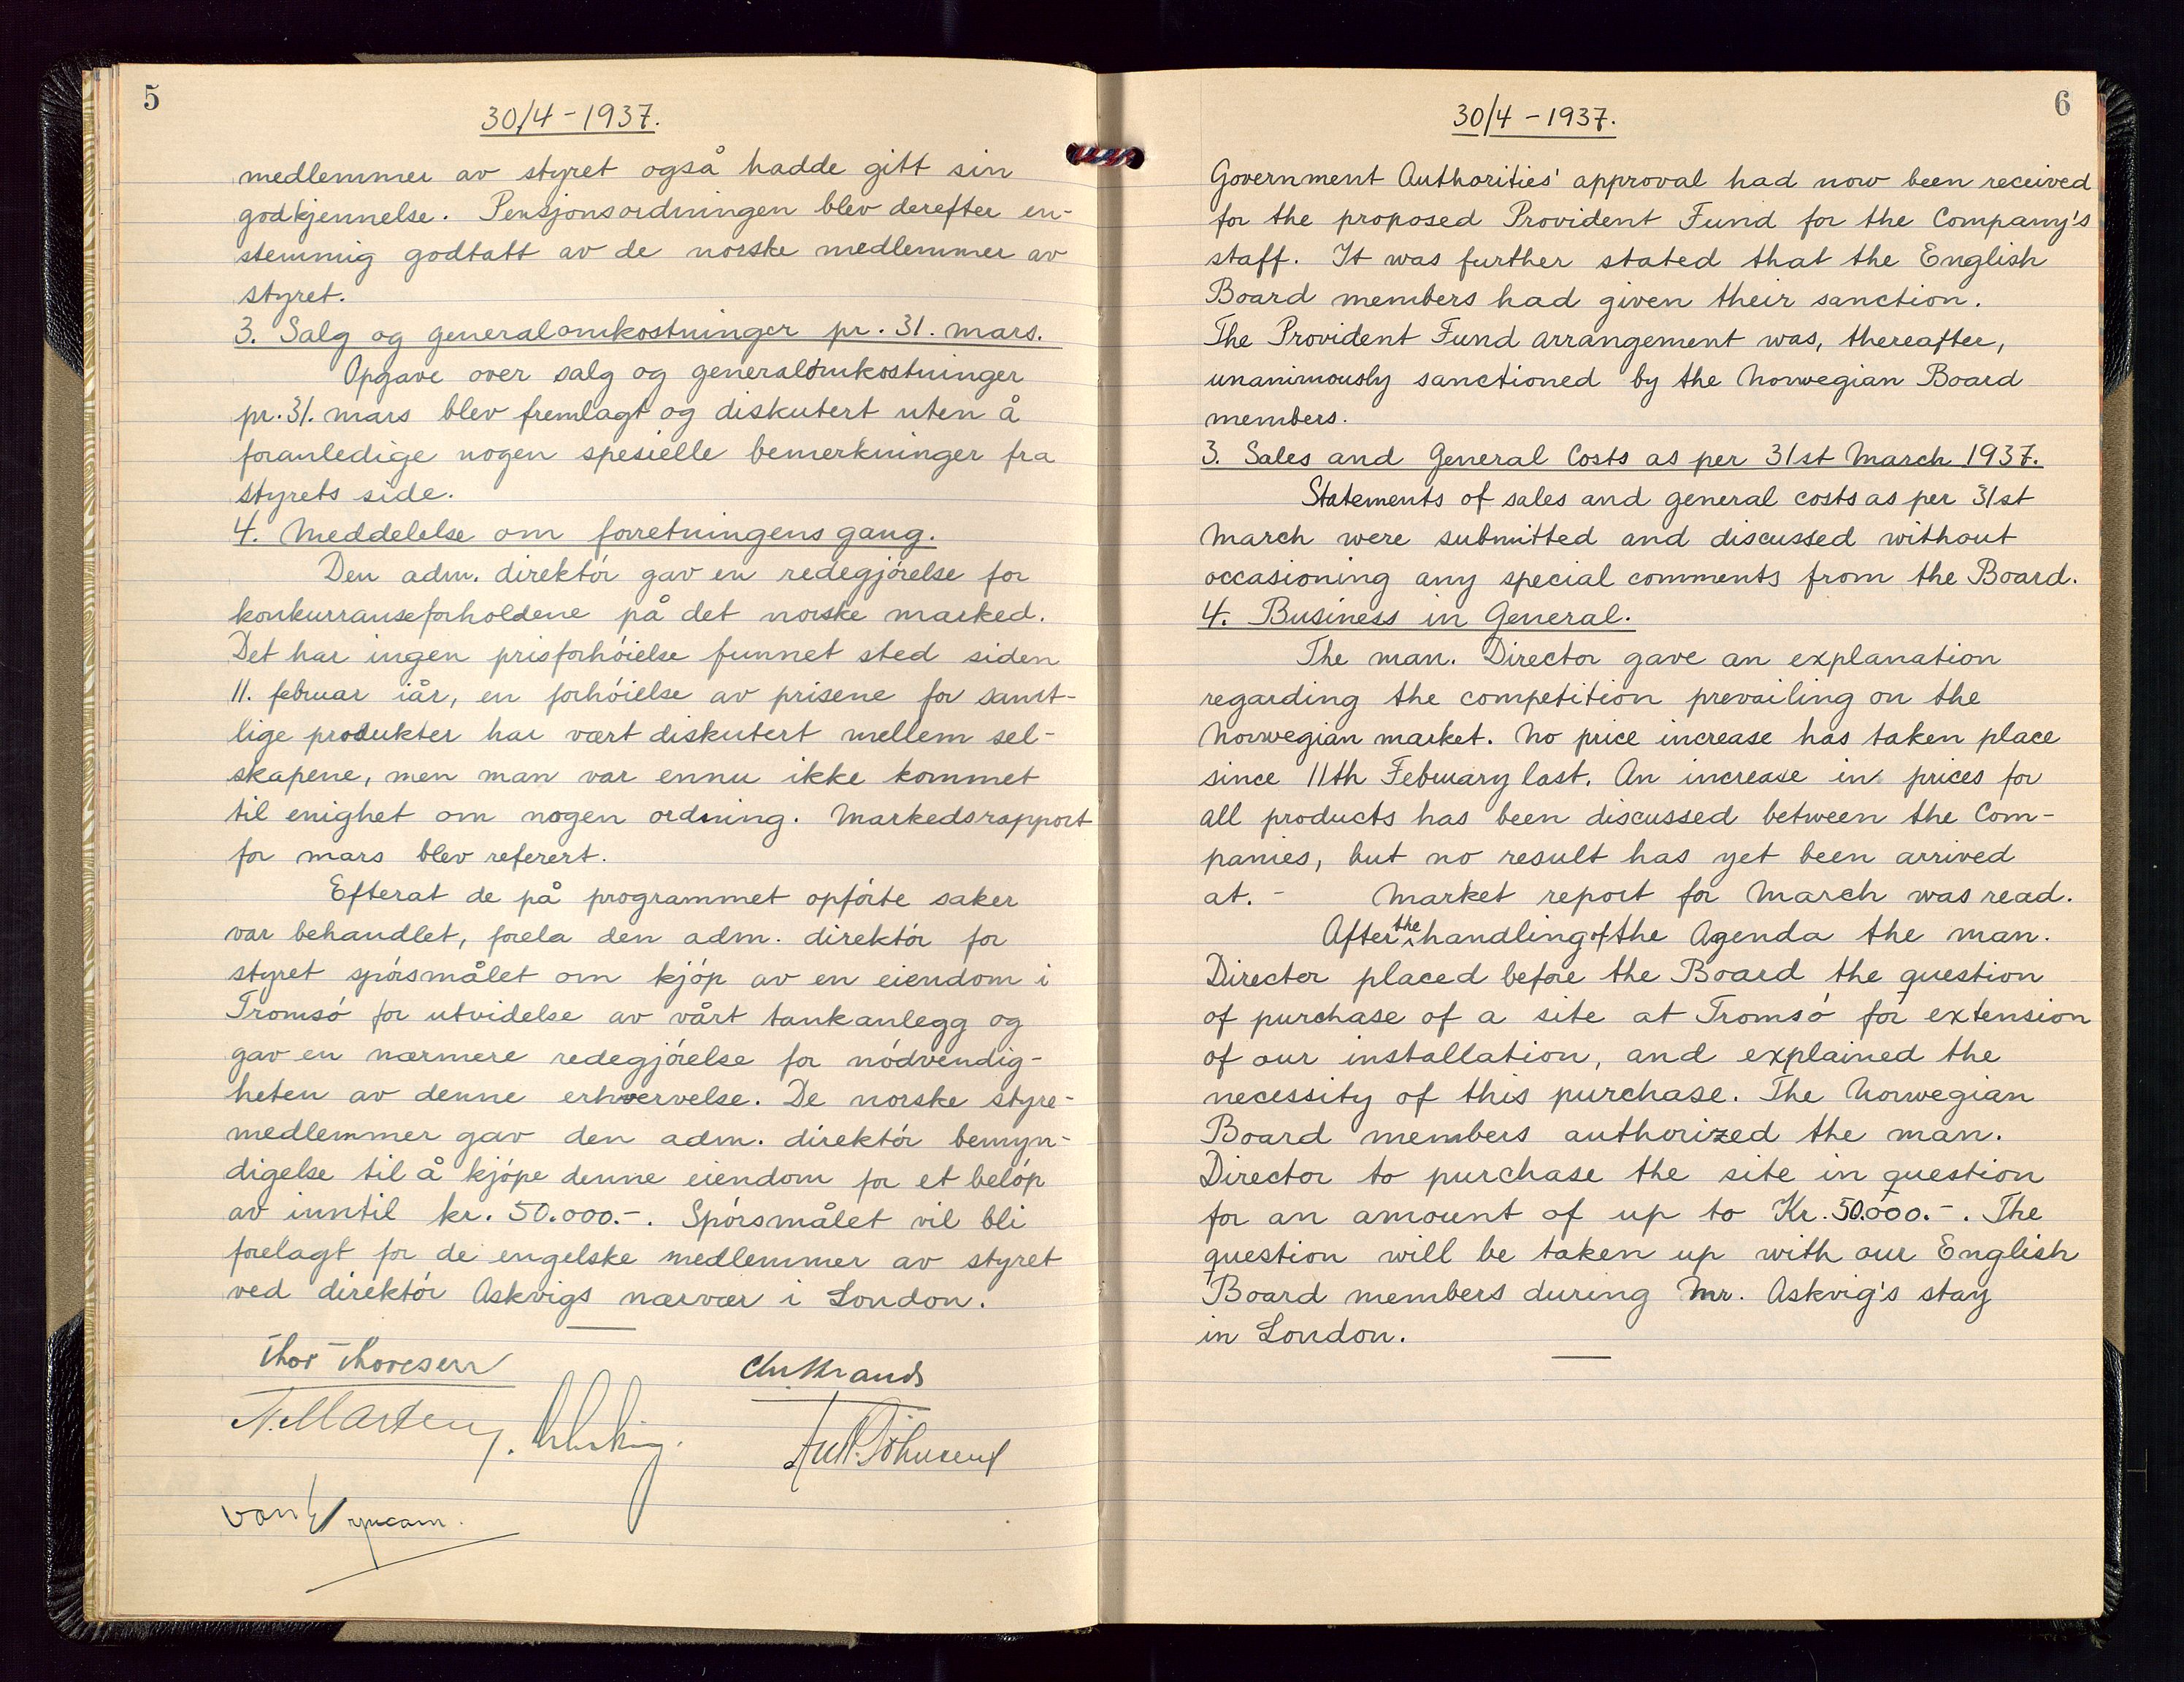 5
30/4 - 1937.
medlemmer av styret også hadde gitt sin
godkjennelse. Pensjonsordningen blev derefter en-
stemmig godtatt av de norske medlemmer av
styret.
3. Salg og generalomkostninger pr. 31. mars.
Opgave over salg og generalomkostninger
pr. 31. mars blev fremlagt og diskutert uten å
foranledige nogen spesielle bemerkninger fra
styrets side.
4. Meddelelse om forretningens gang.
Den adm. direktór gav en redegjórelse for
konkurranseforholdene på det norske marked.
Det har ingen prisforhóielse funnet sted siden
11. februar iår, en forhóielse av prisene for samt-
lige produkter har vært diskutert mellem sel-
skapene, men man var ennu ikke kommet
til enighet om nogen ordning. Markedsrapport
for mars blev referert.
Efterat de på programmet opfórte saker
var behandlet, forela den adm. direktór for
styret spórsmålet om kjóp av en eiendom i
Tromsó for utvidelse av vårt tankanlegg og
gav en nærmere redegjórelse for nódvendig-
heten av denne erhvervelse. De norske styre-
medlemmer gav den adm. direktór bemyn-
digelse til å kjópe denne eiendom for et belóp
av inntil kr. 50.000.-. Spórsmålet vil bli
forelagt for de engelske medlemmer av styret
ved direktór Askvigs nærvær i London.
Thor Thoresen
6
30/4 - 1937.
Government Authorities' approval had now been received
for the proposed Provident Fund for the Company's
staff. It was further stated that the English
Board members had given their sanction.
The Provident Fund arrangement was, thereafter,
unanimously sanctioned by the Norwegian Board
members.
3. Sales and General Costs as per 31st March 1937.
Statements of sales and general costs as per 31st
March were submitted and discussed without
occasioning any special comments from the Board.
4. Business in General.
The man. Director gave an explanation
regarding the competition prevailing on the
Norwegian market. No price increase has taken place
since 11th February last. An increase in prices for
all products has been discussed between the Com-
panies, but no result has yet been arrived
at. - Market report for March was read.
After the handling of the Agenda the man.
Director placed before the Board the question
of purchase of a site at Tromsó for extension
of our installation, and explained the
necessity of this purchase. The Norwegian
Board members authorized the man.
Director to purchase the site in question
for an amount of up to Kr. 50.000.-. The
question will be taken up with our English
Board members during Mr. Askvig's stay
in London.